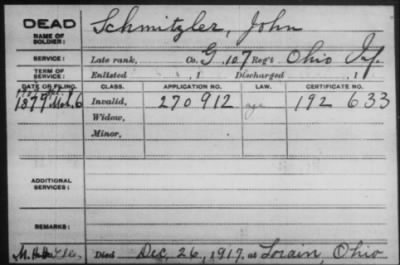 DEAD Schmitzler, John
NAME OF SOLDIER:
SERVICE: Late rank, Co. G. 107 Reg't Ohio Inf.
TERM OF SERVICE: Enlisted , 1 Discharged , 1
DATE OF FILING. CLASS. APPLICATION NO. LAW. CERTIFICATE NO.
1879 Mch. 6 Invalid, 270 912 192 633
Widow,
Minor,
ADDITIONAL SERVICES:
REMARKS:
Died Dec. 26, 1917, at Lorain, Ohio